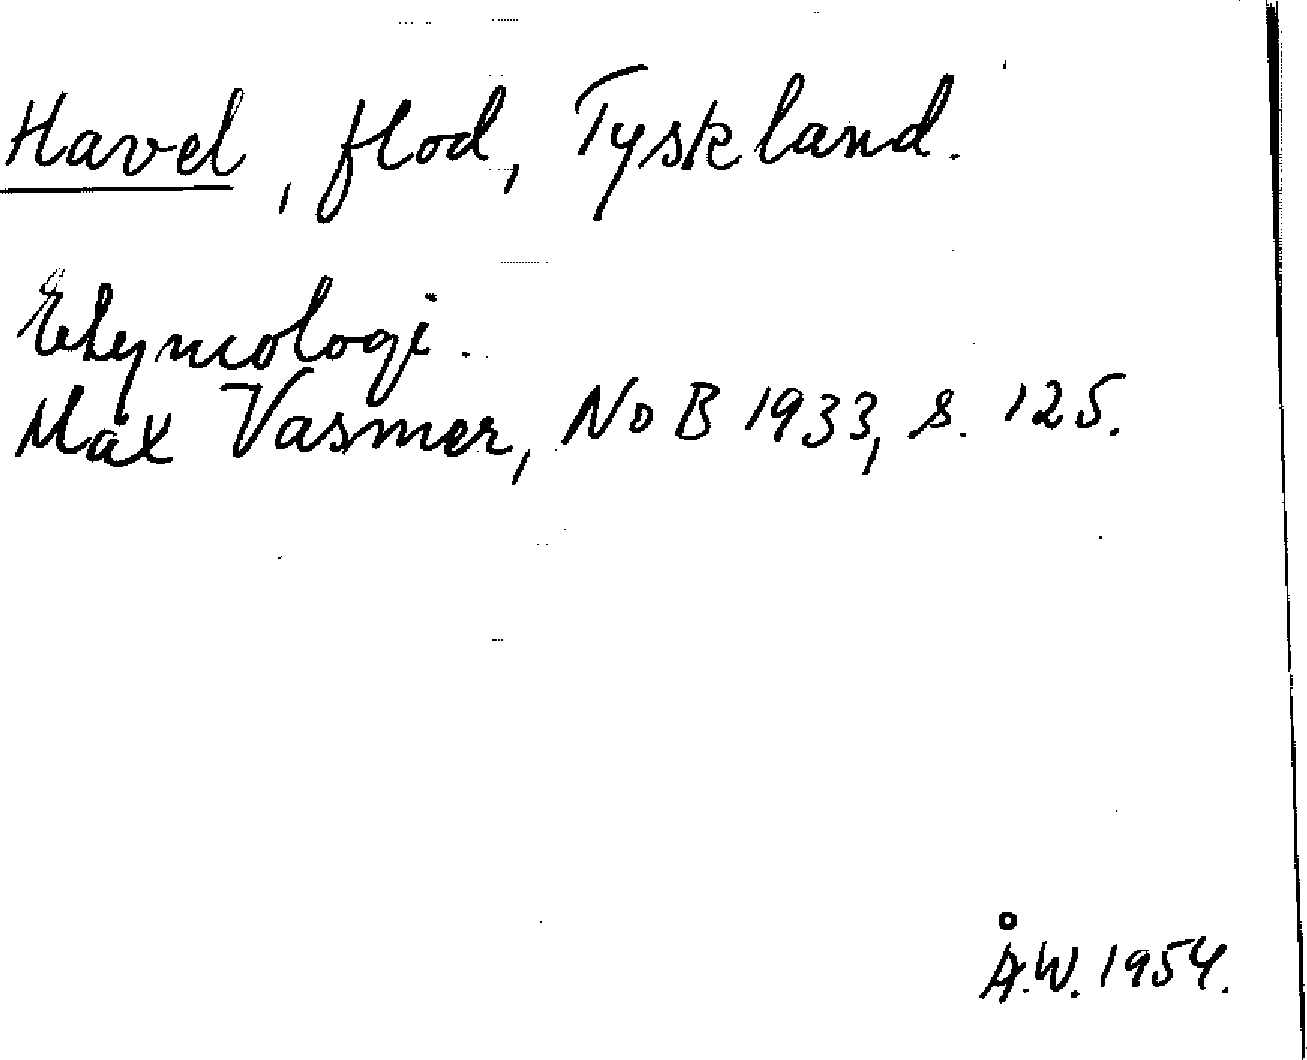 Havel, flod, Tyskland.
Etymologi.
Max Vasmer, NoB 1933, s. 125.
Å.W. 1954.